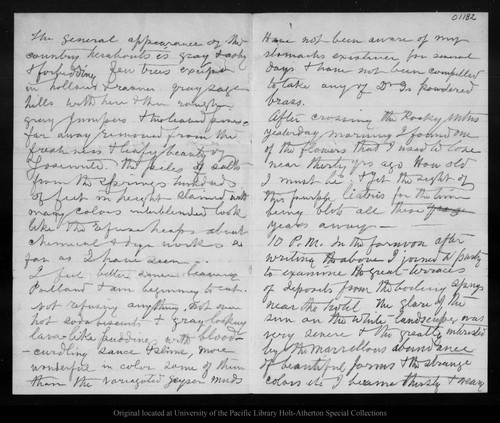 The general appearance of the
country hereabouts is gray & ashy
& forbidding. Few trees except
in hollows & ravines gray sage
hills with here & there roughly
gray junipers &
far away removed from the
freshness & leafy beauty of
Yosemite. The piles of salts
from the springs hundreds
of feet in height stained with
many colors interblended look
like the refuse heaps about
chemical & dye works as
far as I have seen.
I feel better since leaving
Portland & am beginning to eat.
Not refusing anything. Not even
hot soda biscuits & gray looking
lava-like pudding with blood-
curdling sauce & slime, more
wonderful in color some of them
than the variegated geyser muds
01182
Have not been aware of my
stomachs existence for several
days & have not been compelled
to take any of Dr Gs powdered
brass.
After crossing the Rocky Mtns
yesterday morning I found one
of the flowers that I used to love
near thirty yrs ago. How old
I must be & yet the sight of
this purple Liatris for the time
being blots all these
years away —
10 P.M. In the forenoon after
writing the above I joined a party
to examine the great terraces
of deposits from the boiling springs
near the hotel. The glare of the
sun on the white landscape was
very severe & tho greatly interested
by the marvellous abundance
of beautiful forms & the strange
colors etc I became thirsty & weary
Original located at University of the Pacific Library Holt-Atherton Special Collections